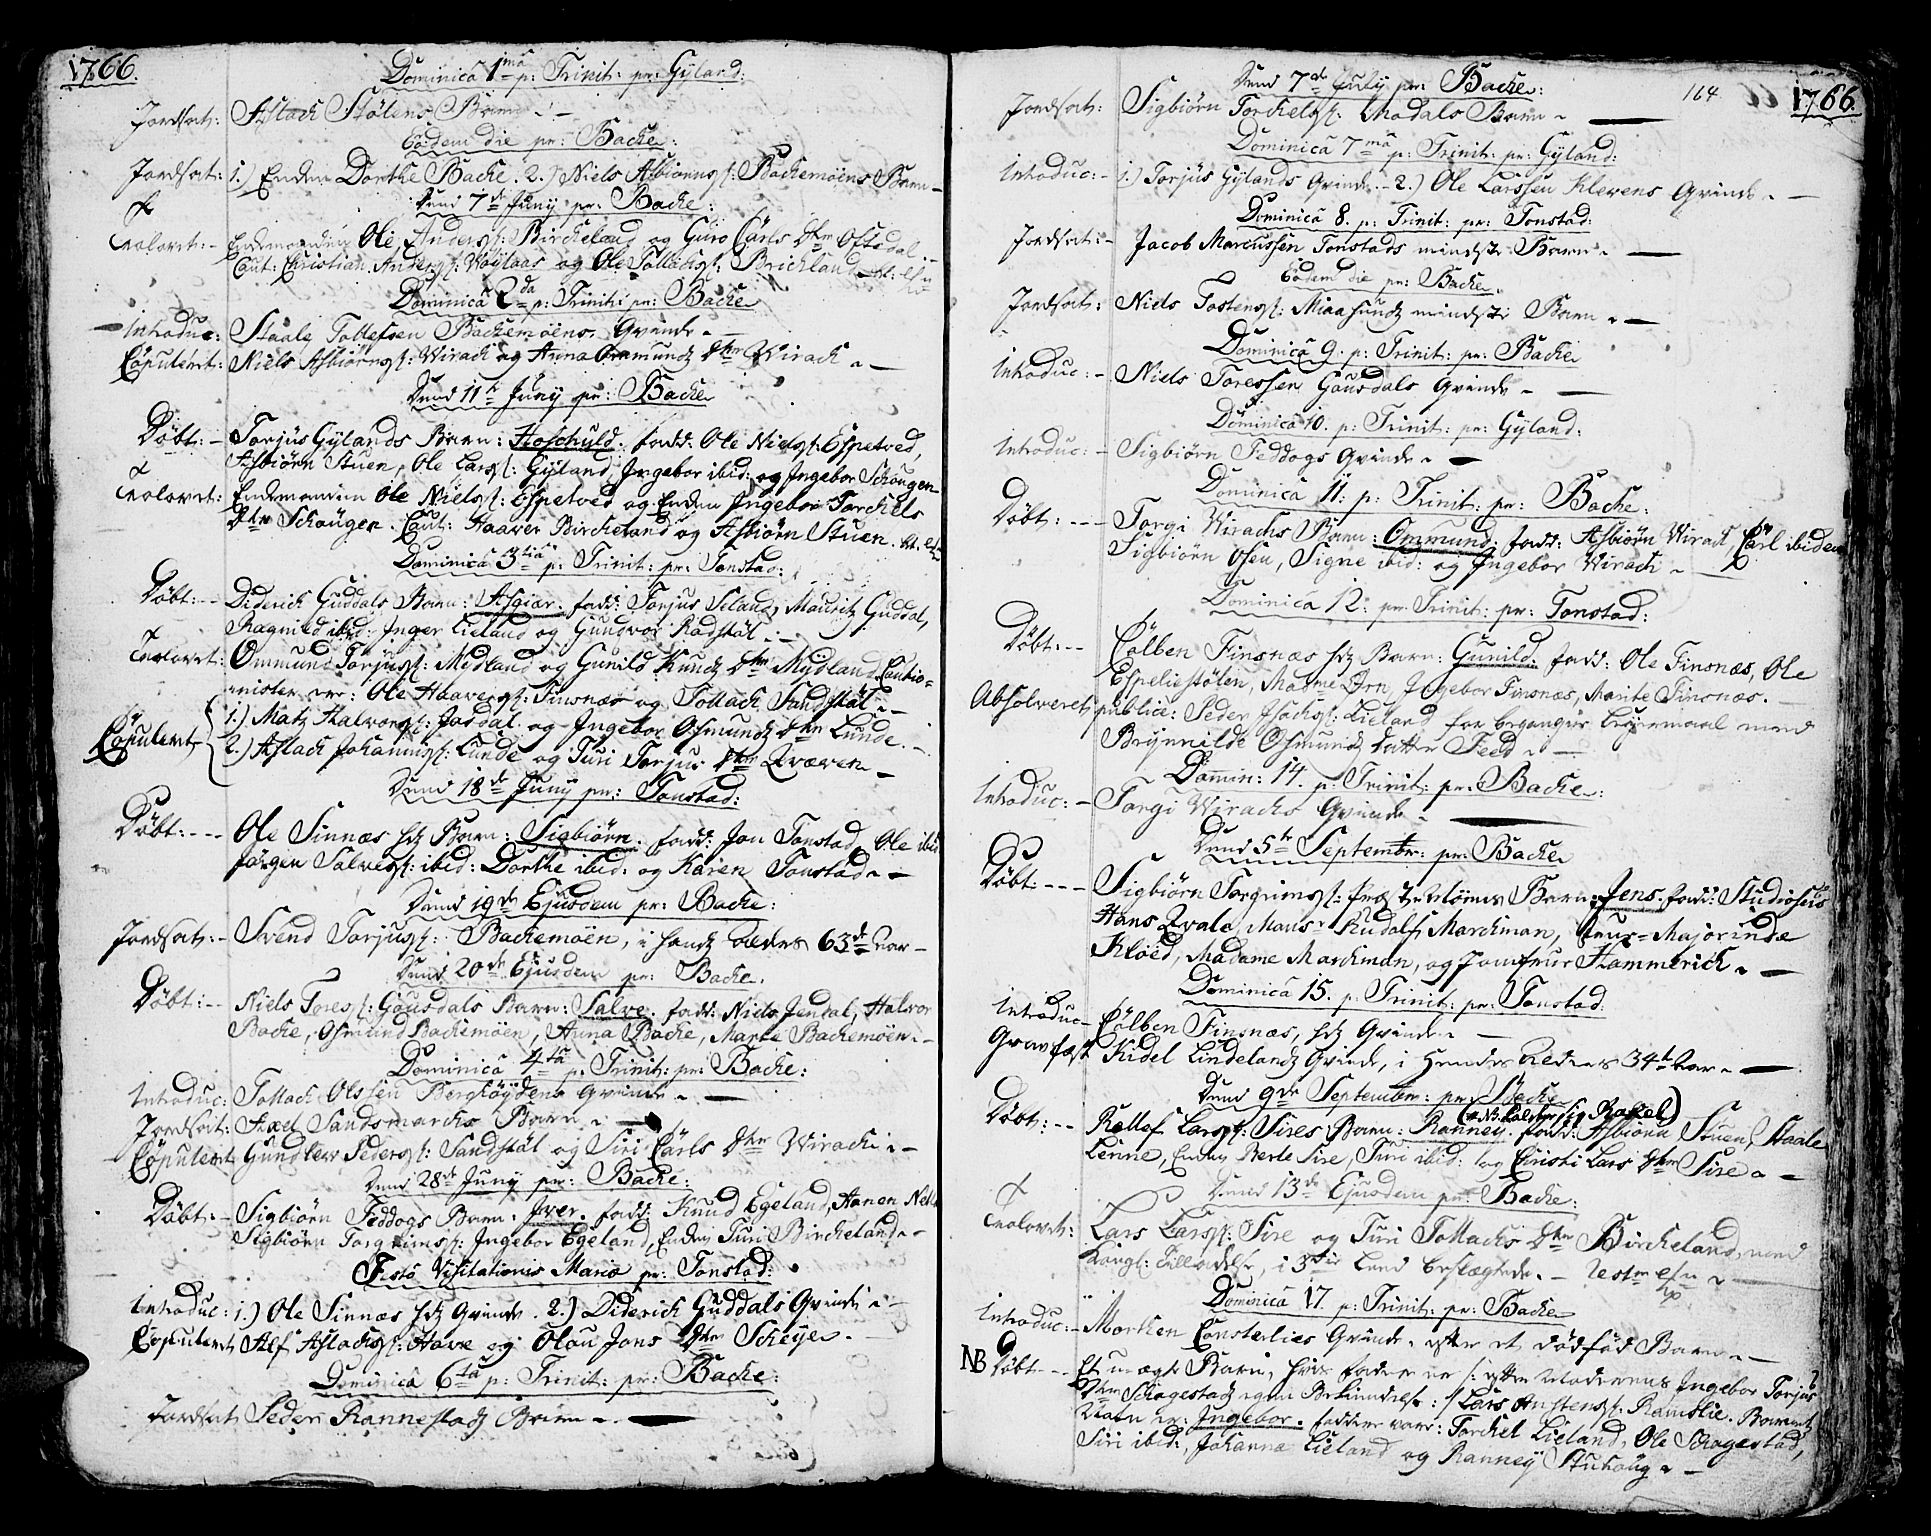 1766.
Dominica 1ma p: Trinit: pr: Gyland:
Jordsat: Aslach Stølens Barn.
Eodem die pr: Backe:
Jordsat: 1.) Enken Dorthe Backe. 2.) Niels Asbiørns: Backemoens Barn
Dend 7de Juny pr: Backe:
Trolovet: Enkemanden Ole Anders: Birckeland og Guro Carls Dtr Ofstedal.
Caut: Christian Anders: Woylaas og Ole Tollachs: Birckland
Dominica 2da p: Trinit: pr: Backe
Introduc: Staale Tollefsen Backemoens Qvinde.
Copuleret: Niels Asbiørns: Wirack og Anna Ommunds Dtr Wirack.
Dend 11te Juny pr: Backe
Døbt: Torjus Gylands Barn: Hoschuld. fadd: Ole Niels: Espetved,
Asbiørn Stuen, Ole Lars: Gyland, Ingebor ibid: og Ingebor Schougen
Trolovet: Enkemanden Ole Niels: Espetved og Enken Ingebor Torchels
Dtr Schougen. Caut: Haaver Birckeland og Asbiørn Stuen.
Dominica 3tia p: Trinit: pr: Tonstad:
Døbt: Diderich Guddals Barn: Asgiær. fadd: Torjus Seland, Mauritz Guddal,
Ragnild ibid: Inger Lieland og Gundvor Rødstøl.
Trolovet: Ommund Torjus: Mydland og Gunild Knuds Dtr Mydland. Cautio-
nister var: Ole Haavers: Finsnæs og Tollach Sandstøl.
Copuleret 1.) Matz Halvors: Josdal og Ingebor Osmunds Dtr Lunde.
2.) Aslach Johannis: Lunde og Turi Torjus Dtr Qvæven
Dend 18de Juny pr: Tonstad:
Døbt: Ole Sinnæs hs Barn: Sigbiørn. fadd: Jon Tonstad, Ole ibid
Jørgen Salves: ibid: Dorthe ibid: og Karen Tonstad.
Dend 19de Ejusdem pr: Backe:
Jordsat: Svend Torjus: Backemoen, i hands alders 63de aar
Dend 20de Ejusdem pr: Backe.
Døbt: Niels Tores: Gousdals Barn: Salve. fadd: Niels Jendal, Halvor
Backe, Osmund Backemoen, Anna Backe, Marte Backemoen.
Dominica 4ta p: Trinit: pr: Backe:
Introduc: Tollach Olssen Berghøydens Qvinde.
Jordsat: Axel Sandsmarks Barn.
Copuleret Gundler Peders: Sandstøl og Siri Carls Dtr Wirack.
Dend 28de Juny pr: Backe:
Døbt: Sigbiørn Feddogs Barn: Iver. fadd: Knud Egeland, Hanen
Sigbiørn Torgrims: Ingebor Egeland, Enken Turi Birckeland.
Festo Visitationis Mariæ pr: Tonstad:
Introduc: 1.) Ole Sinnæs hs Qvinde. 2.) Diderich Guddals Qvinde.
Copuleret Alf Aslachs: Hove og Olau Jons Dtr Scheye.
Dominica 6ta p: Trinit: pr: Backe:
Jordsat Peder Rannestads Barn.
164 1766.
Dend 7de July pr: Backe:
Jordsat: Sigbiørn Torchels: Modals Barn.
Dominica 7ma p: Trinit: pr: Gyland:
Introduc: 1.) Torjus Gylands Qvinde. 2.) Ole Larssen Klevens Qvinde.
Dominica 8. p: Trinit: pr: Tonstad:
Jordsat: Jacob Marcussen Tonstads mindste Barn.
Eodem die pr: Backe.
Jordsat: Niels Tostens: Miaasunds mindste Barn.
Dominica 9. p: Trinit: pr: Backe
Introduc: Niels Toressen Gousdals Qvinde.
Dominica 10. p: Trinit: pr: Gyland:
Introduc: Sigbiørn Feddogs Qvinde.
Dominica 11. p: Trinit: pr: Backe:
Døbt: Torgi Wirachs Barn: Ommund. fadd: Asbiørn Wirack, Carl ibidem
Sigbiørn Osen, Signe ibid: og Ingebor Wirach.
Dominica 12. p: Trinit: pr: Tonstad:
Døbt: Colben Finsnæs hs Barn: Gunild. fadd: Ole Finsnæs, Ole
Espeliestølen, Ingebor Finsnæs, Marite Finsnæs.
Absolveret publice: Peder Isachs: Lieland for begangen leyermaal med
Brynnilde Osmunds datter Feed.
Domin: 14. p: Trinit: pr: Backe:
Introduc: Torgi Wirachs Qvinde.
Dend 5te Septembr: pr: Backe
Døbt: Sigbiørn Torgrims: Barn: Jens. fadd: Studiosus
Hans Qvale, Mons: Rudolf Marchman, Majorinde
Kloed, Madame Marchman, og Jomfrue Hammerich.
Dominica 15. p: Trinit: pr: Tonstad:
Introduc Colben Finsnæs, hs Qvinde.
Gravfæst Kidel Lindelands Qvinde, i hendes Alders 34te Aar.
Dend 9de Septembr: pr: Backe
(NB. kalder sig Rakel)
Døbt: Rollef Lars: Sires Barn: Ranney. fadd: Asbiørn Stuen, Staale
Lenne, Enken Berte Sire, Turi ibid: og Christi Lars Dtr Sire.
Dend 13de Ejusdem pr: Backe:
Trolovet: Lars Lars: Sire og Turi Tollachs Dtr Birckeland, med
Kongl: Tilladelse, i 3die Leed beslægtede.
Dominica 17. p: Trinit: pr: Backe
Introduc: Morthen Consterlies Qvinde, efter et dødfød Barn.
NB Døbt: Et uægte Barn, hvis fader er /: efter Moderens Ingebor Torjus
Dtr Schagestads egen bekiendelse :/ Lars Anstens: Ramslie. Barnets
Navn er: Ingebor. Faddere vare: Torchel Lieland, Ole Schagestad,
Siri ibid:, Johanna Lieland og Ranney Stuhoug.